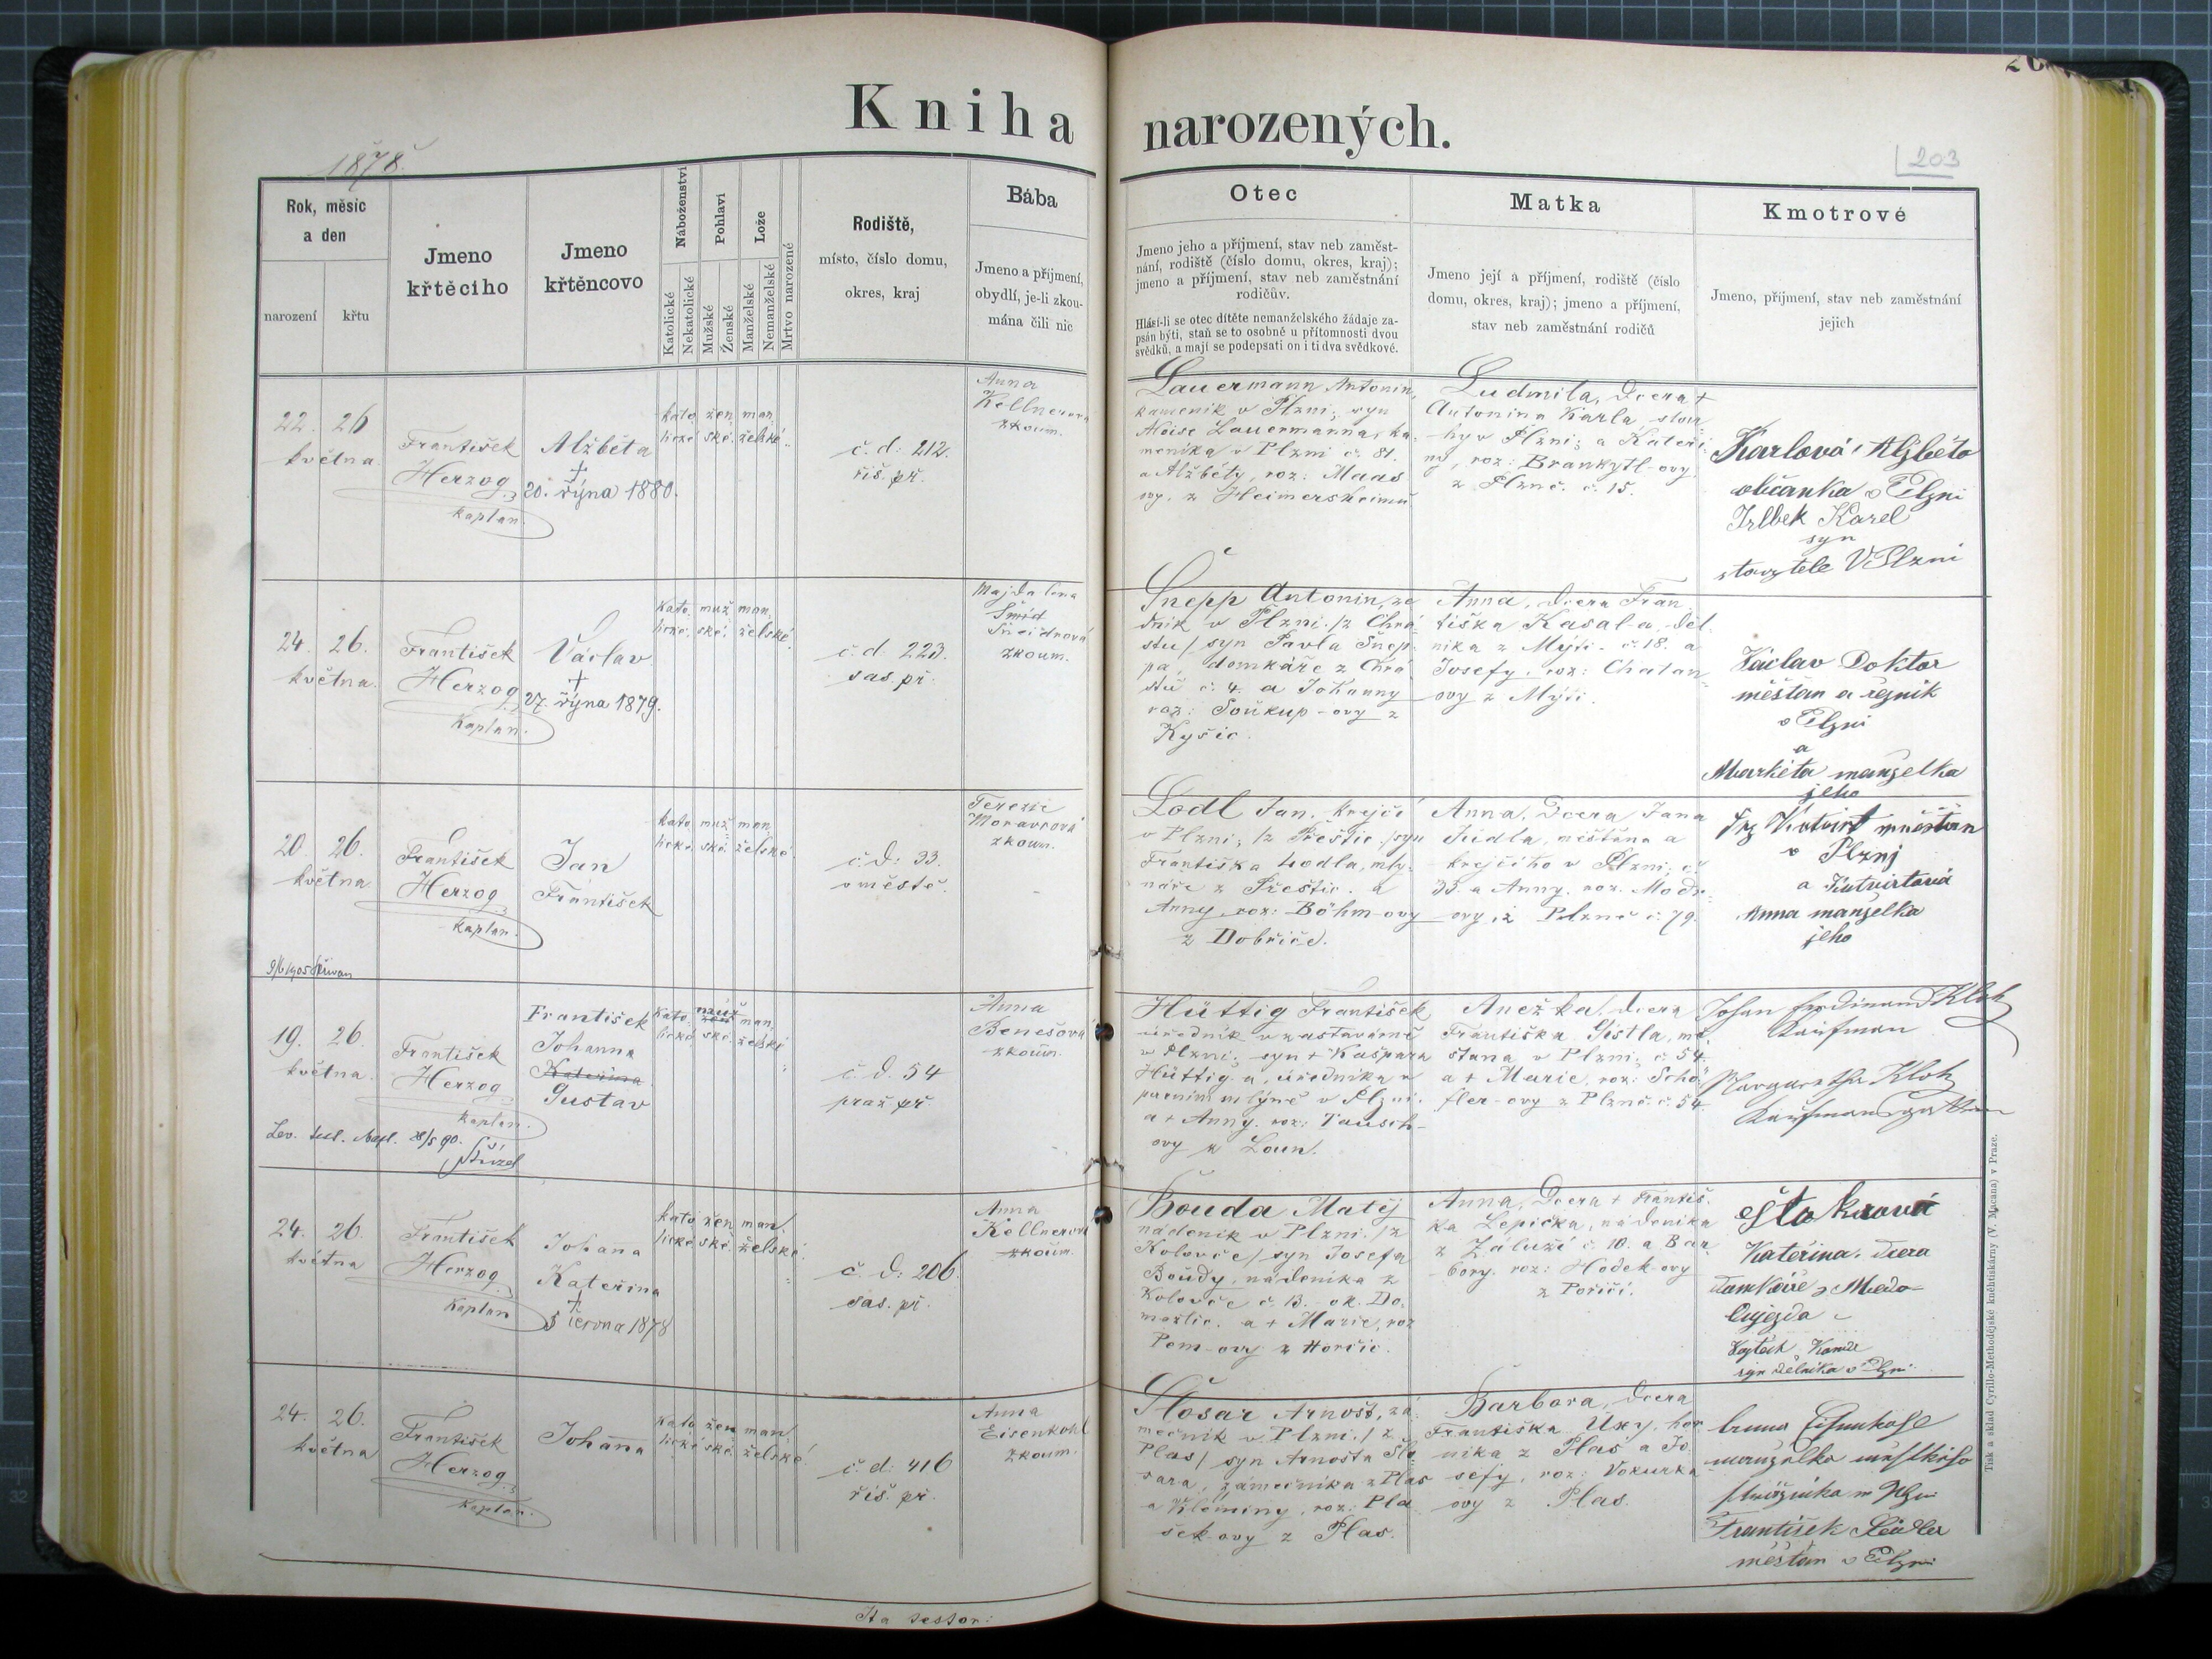 Kniha narozených.
1878.
203
Rok, měsíc
a den
narození
křtu
Jmeno
křtěcího
Jmeno
křtěncovo
Náboženství
Katolické
Nekatolické
Pohlaví
Mužské
Ženské
Lože
Manželské
Nemanželské
Mrtvo narozené
Rodiště,
místo, číslo domu,
okres, kraj
Bába
Jmeno a příjmení,
obydlí, je-li zkou-
mána čili nic
Otec
Jmeno jeho a příjmení, stav neb zaměst-
nání, rodiště (číslo domu, okres, kraj);
jmeno a příjmení, stav neb zaměstnání
rodičův.
Hlásí-li se otec dítěte nemanželského žádaje za-
psán býti, staň se to osobně u přítomnosti dvou
svědků, a mají se podepsati on i ti dva svědkové.
Matka
Jmeno její a příjmení, rodiště (číslo
domu, okres, kraj); jmeno a příjmení,
stav neb zaměstnání rodičů
Kmotrové
Jmeno, příjmení, stav neb zaměstnání
jejich
22. 26
května
František
Herzog
kaplan.
Alžběta
†
20. října 1880.
kato žen man
lické. ské. želské.
č. d: 212.
říš. př.
Anna
Kellnerova
zkoum.
Lauermann Antonin,
kameník v Plzni; syn
Aloise Lauermanna, ka-
meníka v Plzni č. 81.
a Alžběty, roz: Maas
ovy. z Heimersheimu
Ludmila, dcera †
Antonina Karla slou-
hy v Plzni; a Kateři-
ny, roz: Brankytl-ovy
z Plzně. č. 15.
Karlová Alžběta
občanka v Plzni
Irlbek Karel
syn
stavitele V Plzni
24. 26.
května.
František
Herzog
Kaplan.
Václav
†
27. října 1879.
kato muž man
lické. ské. želské.
č. d: 223.
sas. př.
Majdalena
Šmid
Šneidrová
zkoum.
Šnepp Antonin, ze
dník v Plzni. /z Chrá-
stu/ syn Pavla Šnep-
pa, domkáře z Chrá
stu č. 4. a Johanny
roz: Soukup-ovy z
Kyšic.
Anna, dcera Fran
tiška Kasal-a děl-
níka z Mýti. č. 18. a
Josefy, roz: Chalan
ovy z Mýti.
Václav Doktor
měštan a řezník
v Plzni
a
Markéta manželka
jeho
20. 26.
května
František
Herzog
kaplan.
Jan
František
kato muž man
lické. ské. želské.
č. d: 33.
v městě.
Terezie
Moravcová
zkoum.
Lodl Jan, krejčí
v Plzni; /z Přeštic/ syn
Františka Lodla, mly-
náře z Přeštic. a
Anny roz: Böhm-ovy
z Dobříče.
Anna, dcera Jana
Jindla, měštana a
krejčího v Plzni; č.
33. a Anny. roz. Modr-
ovy, z Plzně č. 79.
měštan
v Plznj
a
Anna manželka
jeho
19. 26.
května.
František
Herzog
kaplan.
František
Johanna
Kateřina
Gustav
kato muž man
lické. ské. želské
č. d. 54
praž. př.
Anna
Benešová
zkoum.
Hüttig František
úředník v zastavárně
v Plzni; syn † Kašpara
Hüttig-a, úředníka v
parním mlýně v Plzni.
a † Anny. roz: Tausch-
ovy z Loun.
Anežka, dcera
Františka Gistla, mě-
stana v Plzni; č. 54.
a † Marie, roz: Schö-
fler-ovy z Plzně. č. 54.
Johan Ferdinand Klotz
Kaufman
Margaretha Klotz
Kaufmansgattin
24. 26.
května
František
Herzog
Kaplan
Johana
Kateřina
†
5 června 1878
kato žen man
lické ské. želské.
č. d: 206.
sas. př.
Anna
Kellnerova
zkoum.
Bouda Matěj
nádeník v Plzni. /z
Kolovče/ syn Josefa
Boudy, nádeníka z
Kolovče č. 13. ok. Do-
mažlic. a † Marie, roz
Pom-ovy z Horšic.
Anna, dcera † Františ-
ka Lepička, nádeníka
z Záluží č. 10. a Bar
bory. roz: Hodek-ovy
z Poříčí.
Kateřina, dcera
domkáře z Medo-
Oujezda
Vojtěch
syn dělníka v Plzni
24. 26.
května
František
Herzog
kaplan.
Johana
kato žen man
lické ské. želské.
č. d: 416
říš. př.
Anna
Eisenkohl
zkoum.
Šlosar Arnošt, zá-
mečník v Plzni. /z
Plas/ syn Arnošta Šlo
sara, zámečníka z Plas
a Vilóminy, roz: Pla
šek-ovy z Plas.
Barbora, dcera
Františka Uxy, hor
níka z Plas a Jo
sefy, roz: Vokurka
ovy z Plas.
manželka
František
měštan v Plzni
Tisk a sklad Cyrillo-Methodějské knihtiskárny (V. Macana) v Praze.